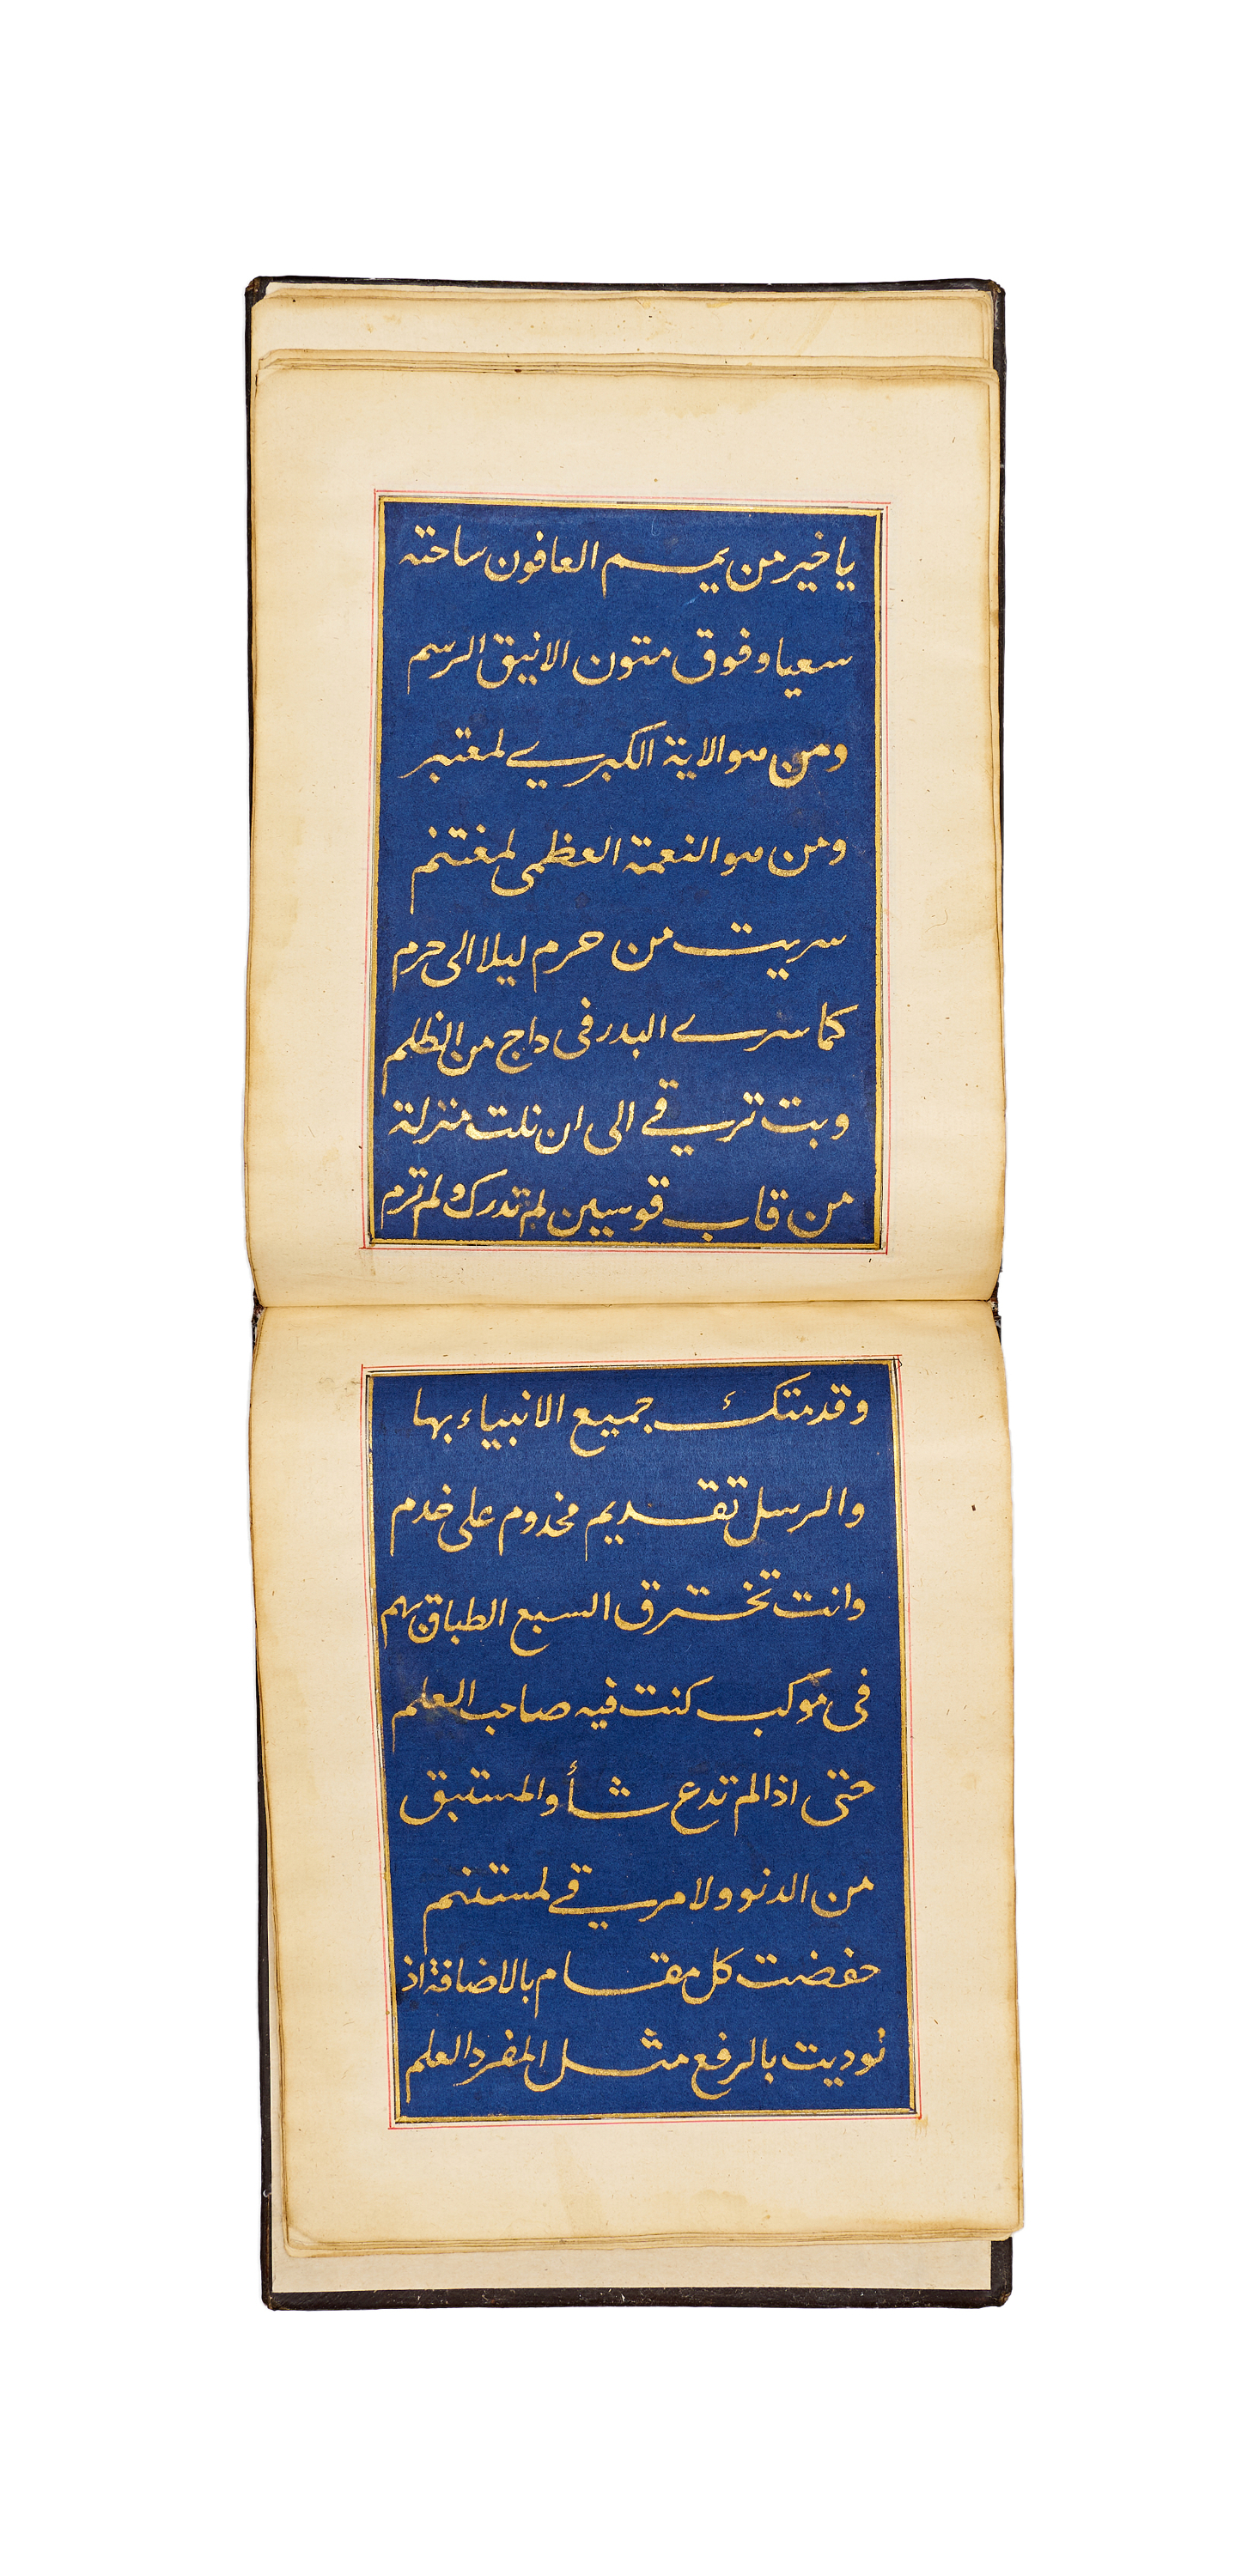 يا خير من يمم العافون ساحته
سعيا وفوق متون الانيق الرسم
ومن هو الاية الكبرى لمعتبر
ومن هو النعمة العظمى لمغتنم
سريت من حرم ليلا الى حرم
كما سرى البدر فى داج من الظلم
وبت ترقى الى ان نلت منزلة
من قاب قوسين لم تدرك ولم ترم
وقدمتك جميع الانبياء بها
والرسل تقديم مخدوم على خدم
وانت تخترق السبع الطباق بهم
فى موكب كنت فيه صاحب العلم
حتى اذا لم تدع شأوا لمستبق
من الدنو ولا مرقى لمستنم
خفضت كل مقام بالاضافة اذ
نوديت بالرفع مثل المفرد العلم